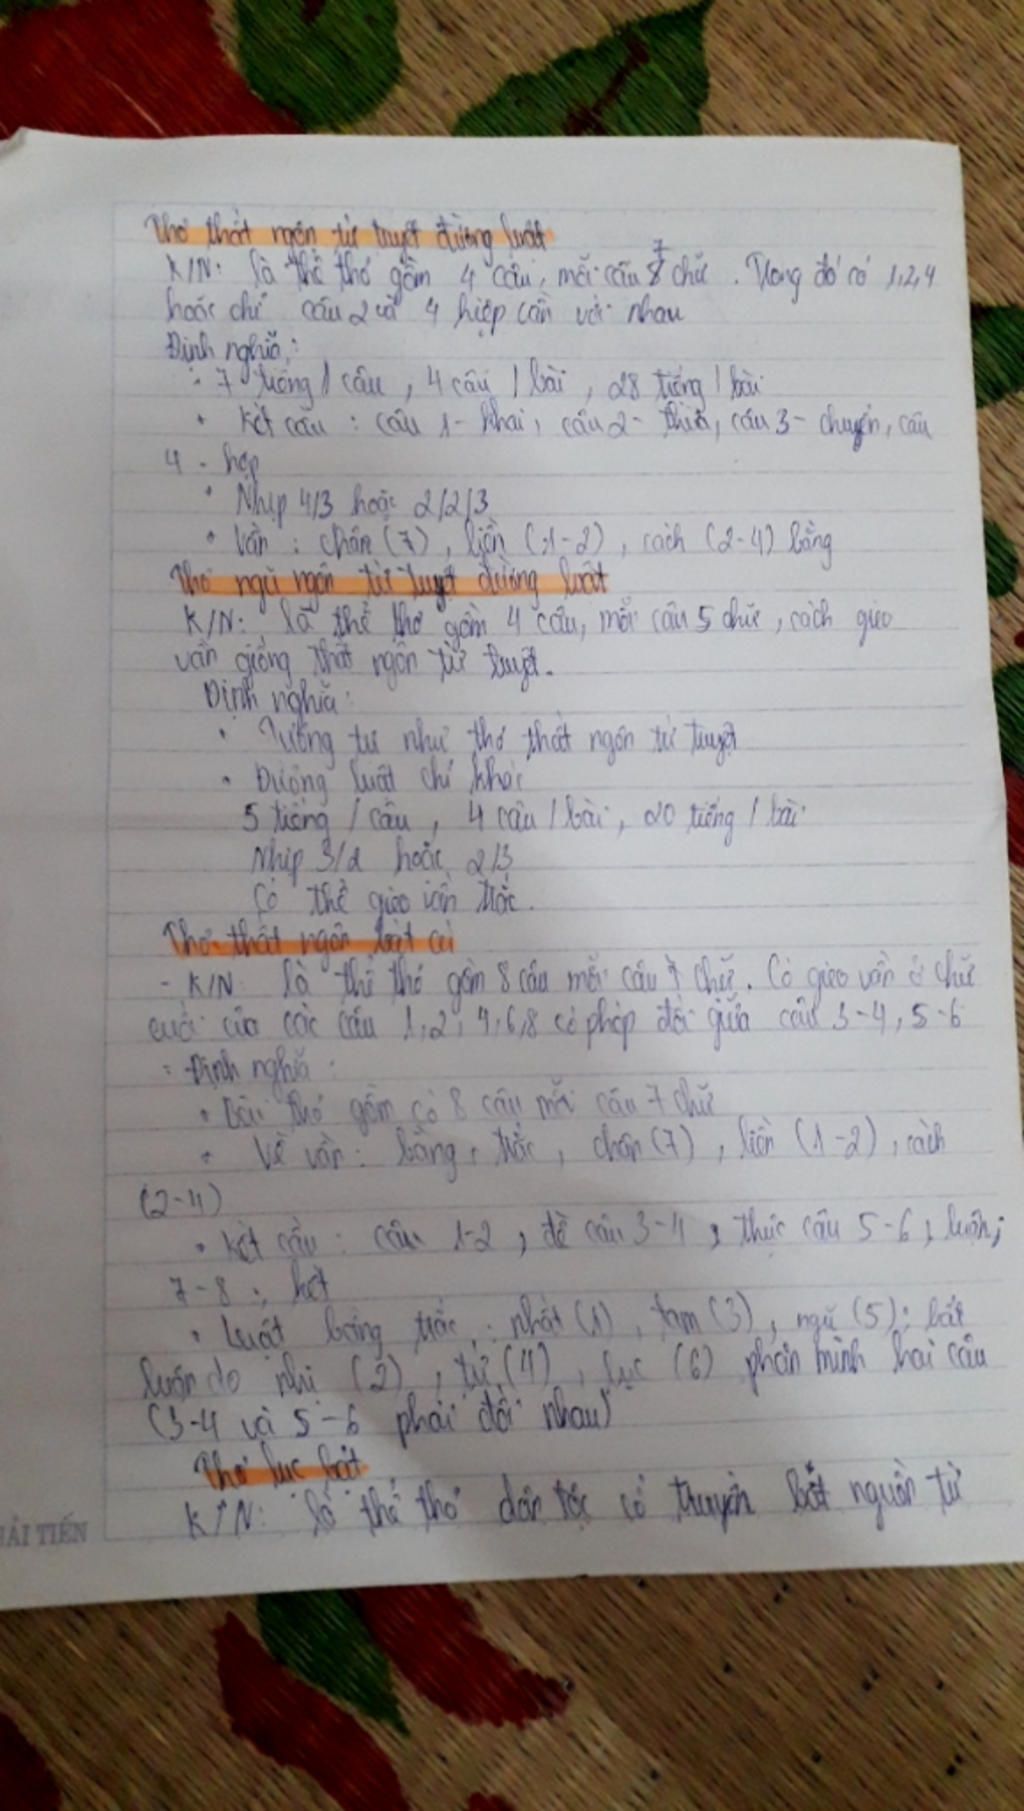 Thơ thất ngôn tứ tuyệt đường luật
K/N: là thể thơ gồm 4 câu, mỗi câu 7 chữ. Trong đó có 1,2,4
hoặc chỉ câu 2 và 4 hiệp vần với nhau
Định nghĩa:
7 tiếng / câu, 4 câu / bài, 28 tiếng / bài
• Kết cấu: câu 1- khai, câu 2- thừa, câu 3- chuyển, câu
4 - hợp
• Nhịp 4/3 hoặc 2/2/3
• Vần: chân (7), liền (1-2), cách (2-4) bằng
Thơ ngũ ngôn tứ tuyệt đường luật
K/N: là thể thơ gồm 4 câu, mỗi câu 5 chữ, cách gieo
vần giống thất ngôn tứ tuyệt.
Định nghĩa:
• Tương tự như thơ thất ngôn tứ tuyệt
• Đường luật chỉ khác
5 tiếng / câu, 4 câu / bài, 20 tiếng / bài
Nhịp 3/2 hoặc 2/3
Có thể gieo vần trắc.
Thơ thất ngôn bát cú
- K/N là thể thơ gồm 8 câu mỗi câu 7 chữ. Có gieo vần ở chữ
cuối của các câu 1,2,4,6,8 có phép đối giữa câu 3-4, 5-6
- Định nghĩa:
• Bài thơ gồm có 8 câu mỗi câu 7 chữ
• Về vần: bằng, trắc, chân (7), liền (1-2), cách
(2-4)
• Kết cấu: câu 1-2, đề câu 3-4, thực câu 5-6, luận;
7-8: kết
• Luật bằng trắc: nhất (1), tam (3), ngũ (5): bất
luận do nhị (2), tứ (4), lục (6) phân minh hai câu
(3-4 và 5-6 phải đối nhau)
Thơ lục bát
K/N: là thể thơ dân tộc cổ truyền bắt nguồn từ
HẢI TIẾN